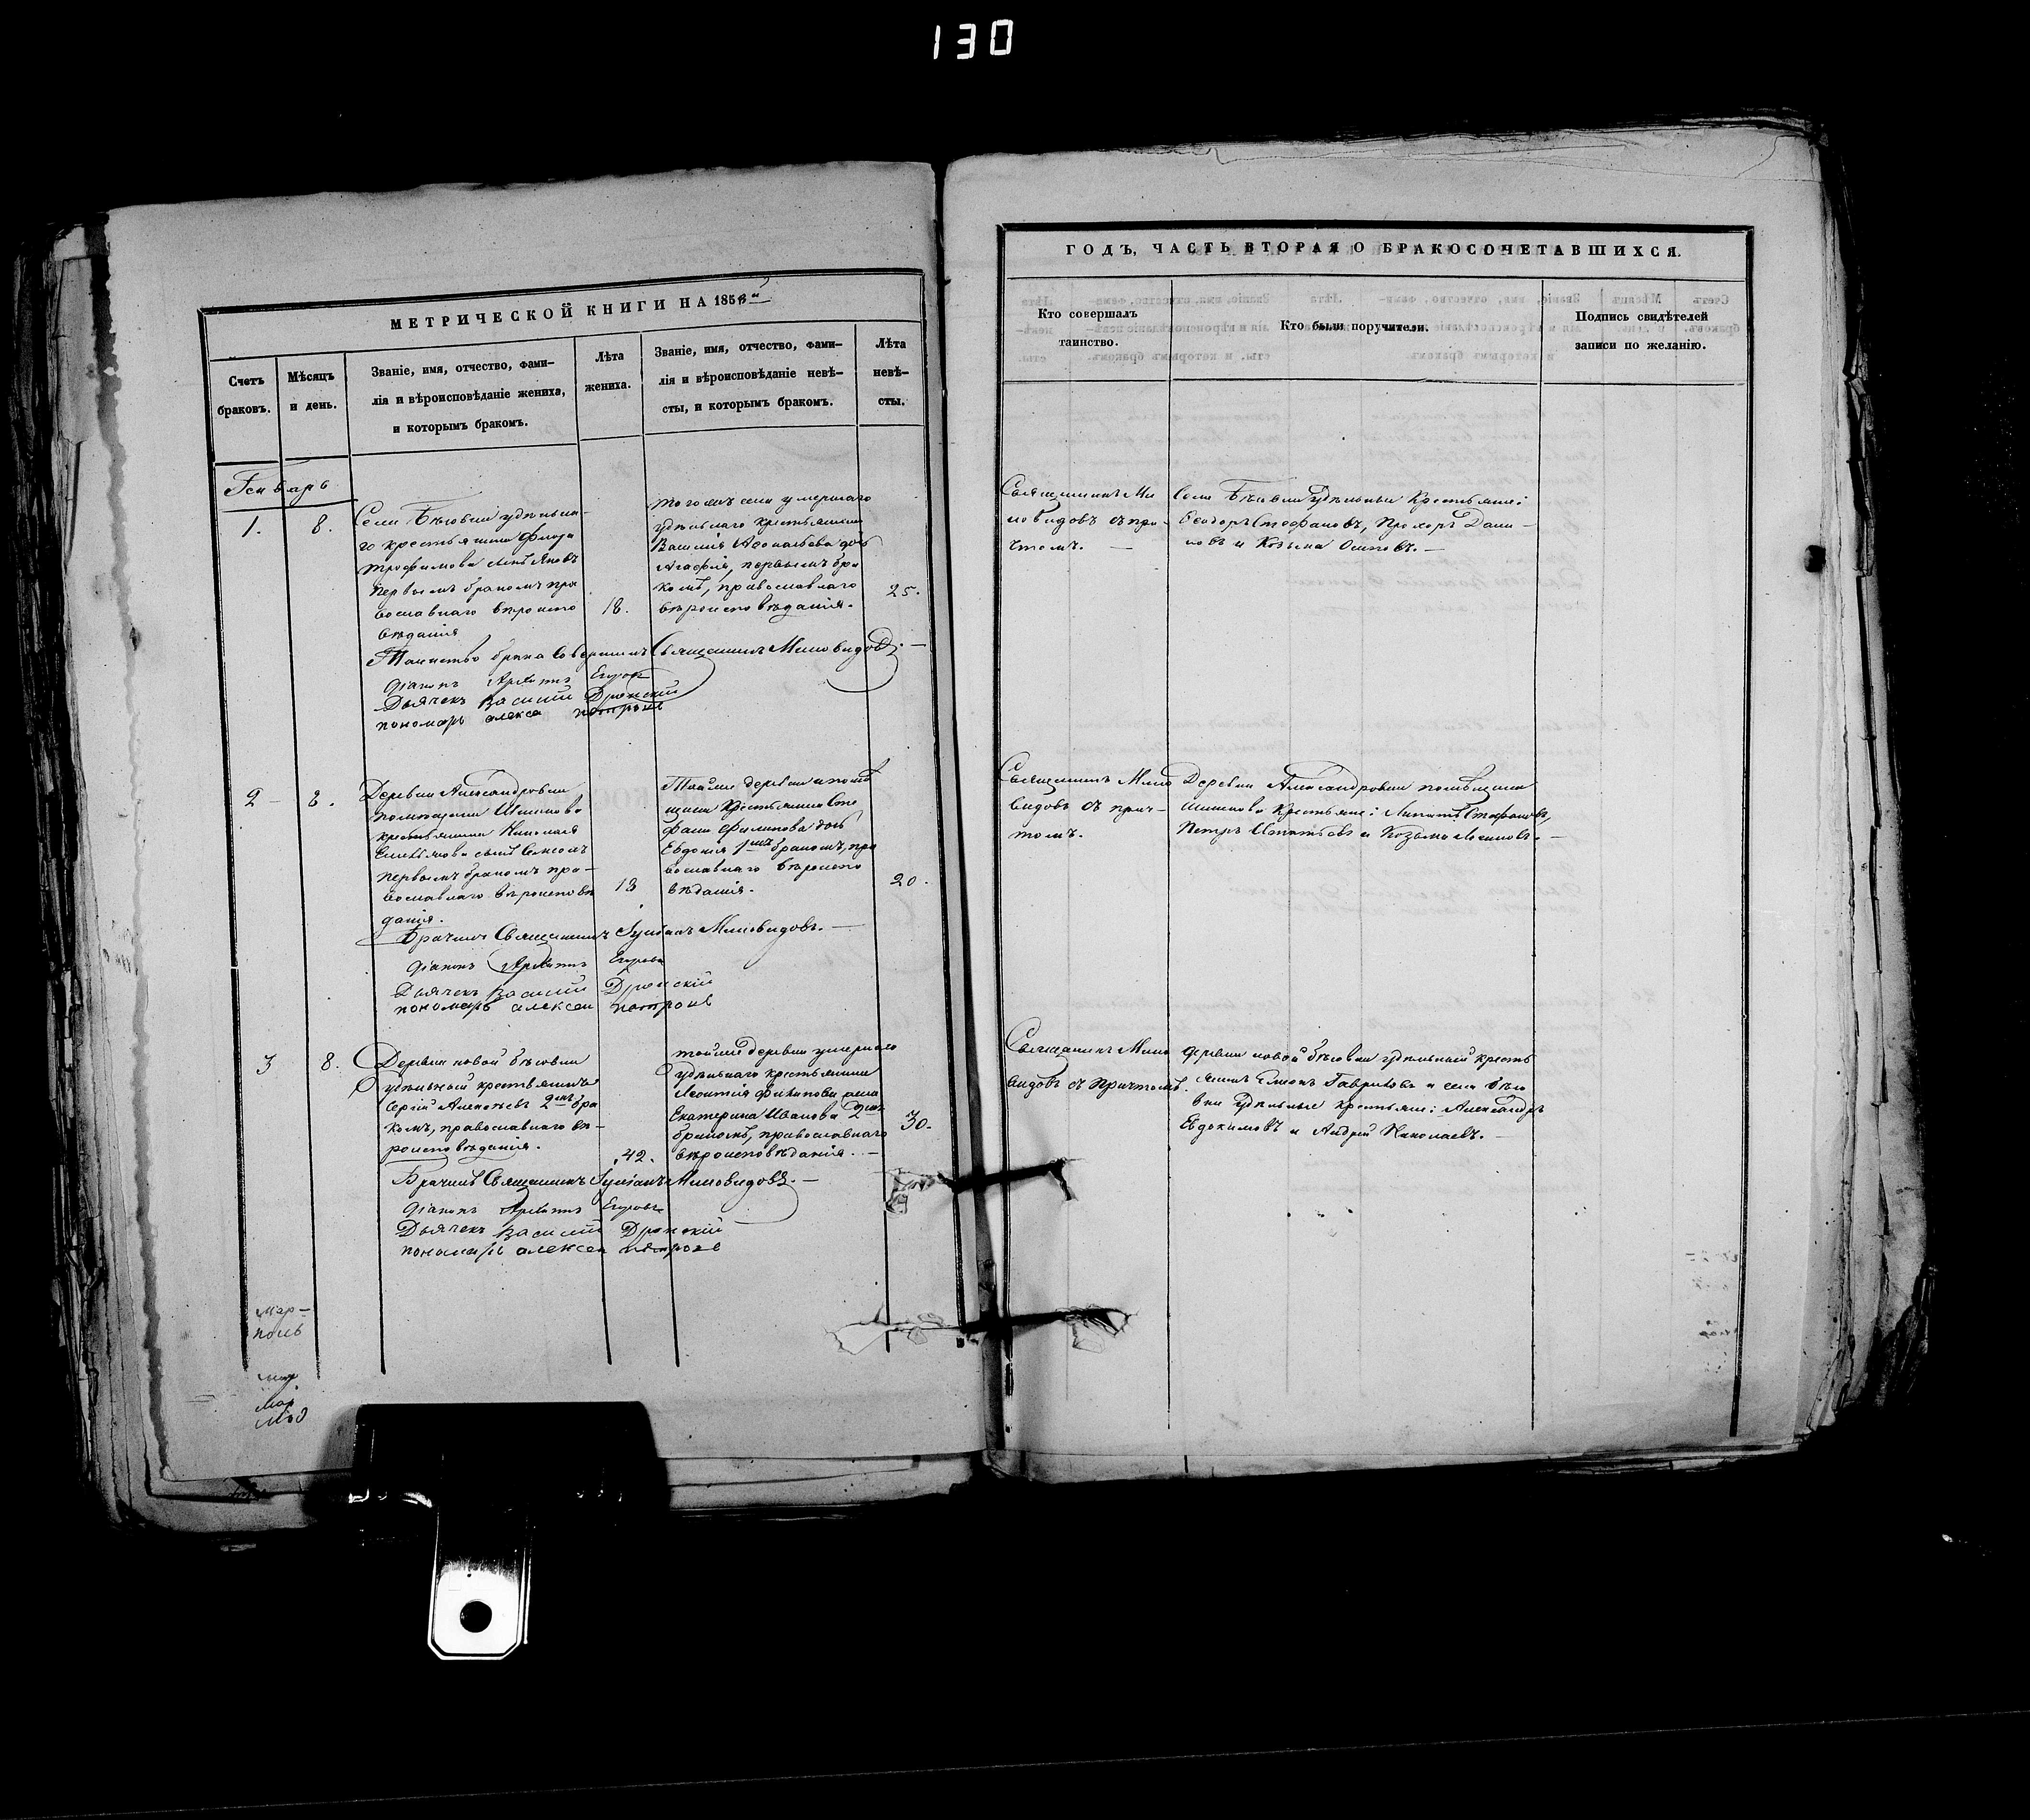 130
МЕТРИЧЕСКОЙ КНИГИ НА 185
Счетъ
браковъ.
Мѣсяцъ
и день.
Званіе, имя, отчество, фами-
лія и вѣроисповѣданіе жениха,
и которымъ бракомъ.
Лѣта
жениха.
Званіе, имя, отчество, фами-
лія и вѣроисповѣданіе невѣ-
сты, и которымъ бракомъ.
Лѣта
невѣ-
сты.
Генварь
1.
8.
Села удѣльна-
го крестьянина
Трофимова сынъ Яковъ
первымъ бракомъ пра
вославнаго вѣроиспо
вѣданія
18.
тогожъ села умершаго
удѣльнаго крестьянина
Василія дочь
Агафія, первымъ бра
комъ, православнаго
вѣроисповѣданія.
25.
Таинство брака совершилъ Священникъ Миловидовъ.
Діаконъ Егоровъ
Дьячекъ Василій
пономарь алексе петровъ
2
8.
Деревни Александровки
помѣщика Шишкова
крестьянина Николая
сынъ
первымъ бракомъ пра-
вославнаго вѣроисповѣ
данія.
18
Тойже деревни и помѣ
щика крестьянина Сте
фана Филипова дочь
Евдокія 1мъ бракомъ, пра
вославнаго вѣроиспо
вѣданія.
20.
Брачилъ Священникъ Миловидовъ.
Діаконъ Егоровъ
Дьячекъ Василій
пономарь алексеи петровъ
3
8.
Деревни новой бѣсовки
удѣльный крестьянинъ
Сергій 2мъ бра
комъ, православнаго вѣ-
роисповѣданія.
42.
тойже деревни умершаго
удѣльнаго крестьянина
Леонтія Филипова жена
Екатерина Иванова 2мъ
бракомъ, православнаго
вѣроисповѣданія.
30.
Брачилъ Священникъ Миловидовъ.
Діаконъ Егоровъ
Дьячекъ Василій
пономарь алексеи петровъ
ГОДЪ, ЧАСТЬ ВТОРАЯ О БРАКОСОЧЕТАВШИХСЯ.
Кто совершалъ
таинство.
Кто были поручители.
Подпись свидѣтелей
записи по желанію.
Священникъ Ми
ловидовъ съ при-
чтомъ.
Села удѣльные крестьяне:
Ѳеодоръ Стефановъ, Прохоръ Дани-
ловъ и Козьма Осиповъ.
Священникъ Мило
видовъ съ прич-
томъ.
Деревни Александровки помѣщика
Шишкова крестьяне: Стефановъ,
Петръ и Козьма
Священникъ Мило
видовъ съ причтомъ.
деревни новой бѣсовки удѣльный кресть
янинъ Гавриловъ и села бѣсо
вки удѣльные крестьяне: Александръ
Евдокимовъ и Андрей Николаевъ.